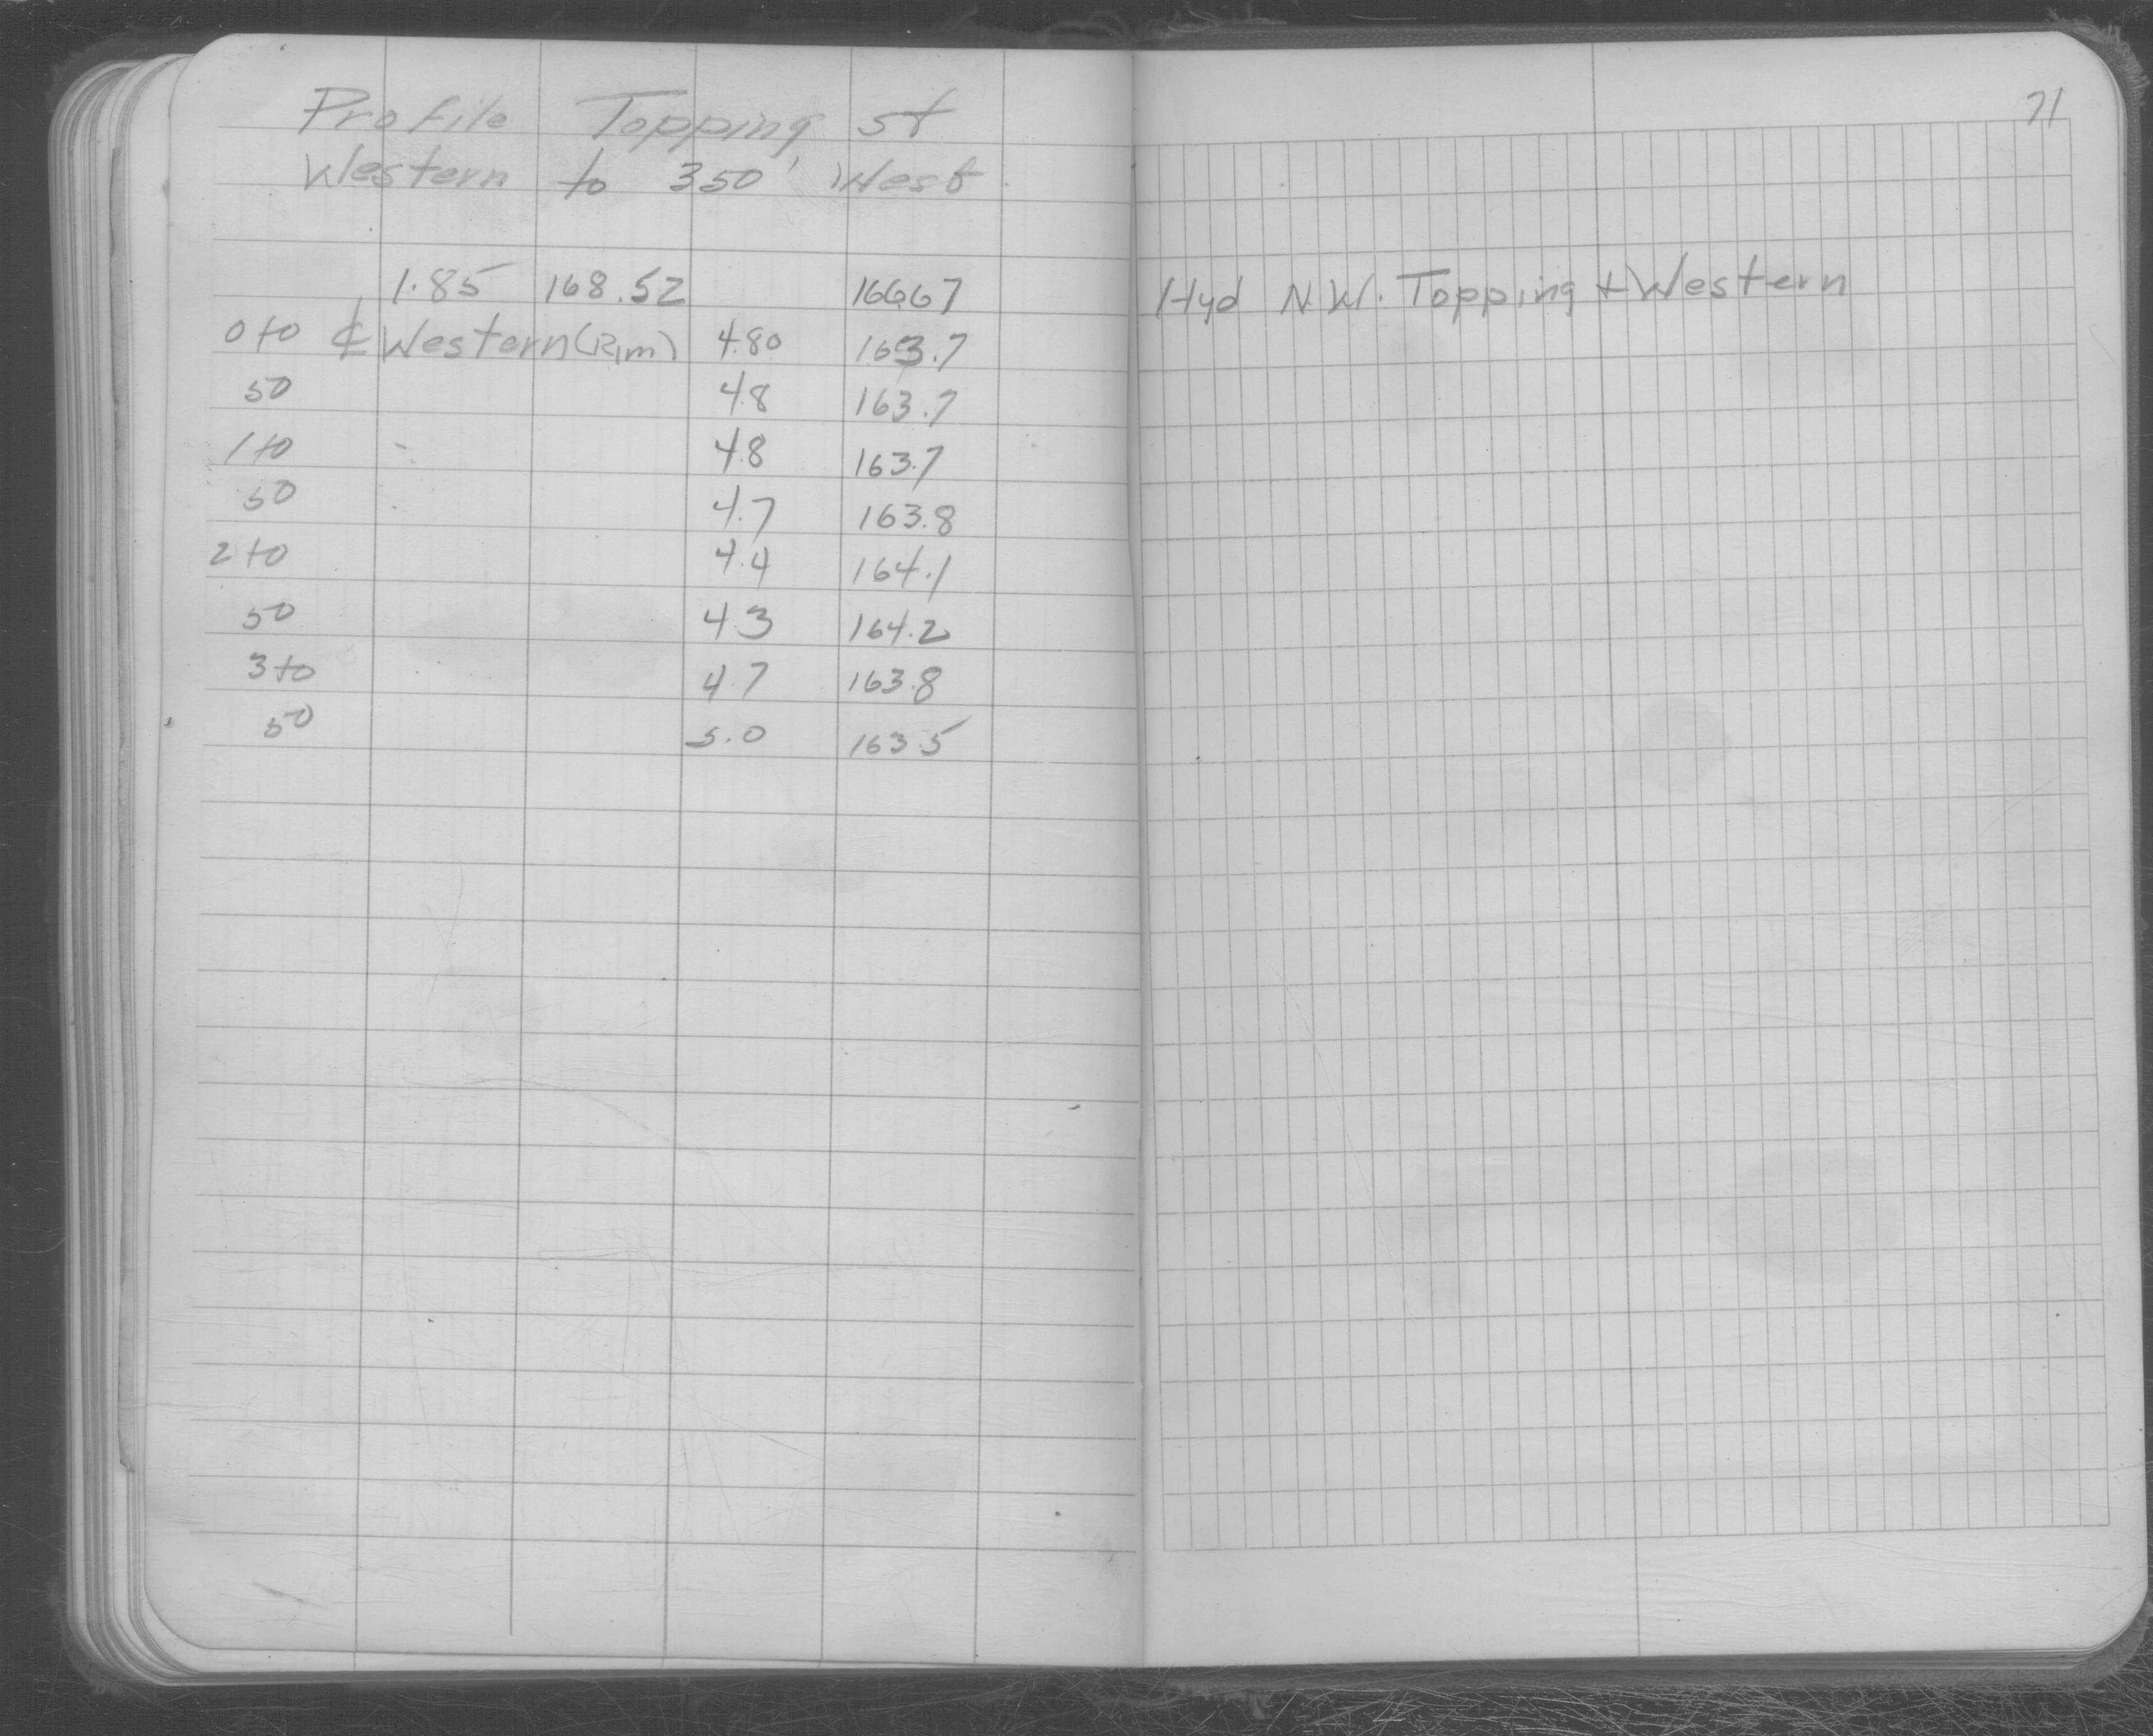 Profile Topping st
Western to 350' West
1.85 168.52 166.67
0+0 ℄ Western (Rim) 4.80 163.7
50 4.8 163.7
1+0 4.8 163.7
50 4.7 163.8
2+0 4.4 164.1
50 4.3 164.2
3+0 4.7 163.8
50 5.0 163.5
71
Hyd N.W. Topping + Western